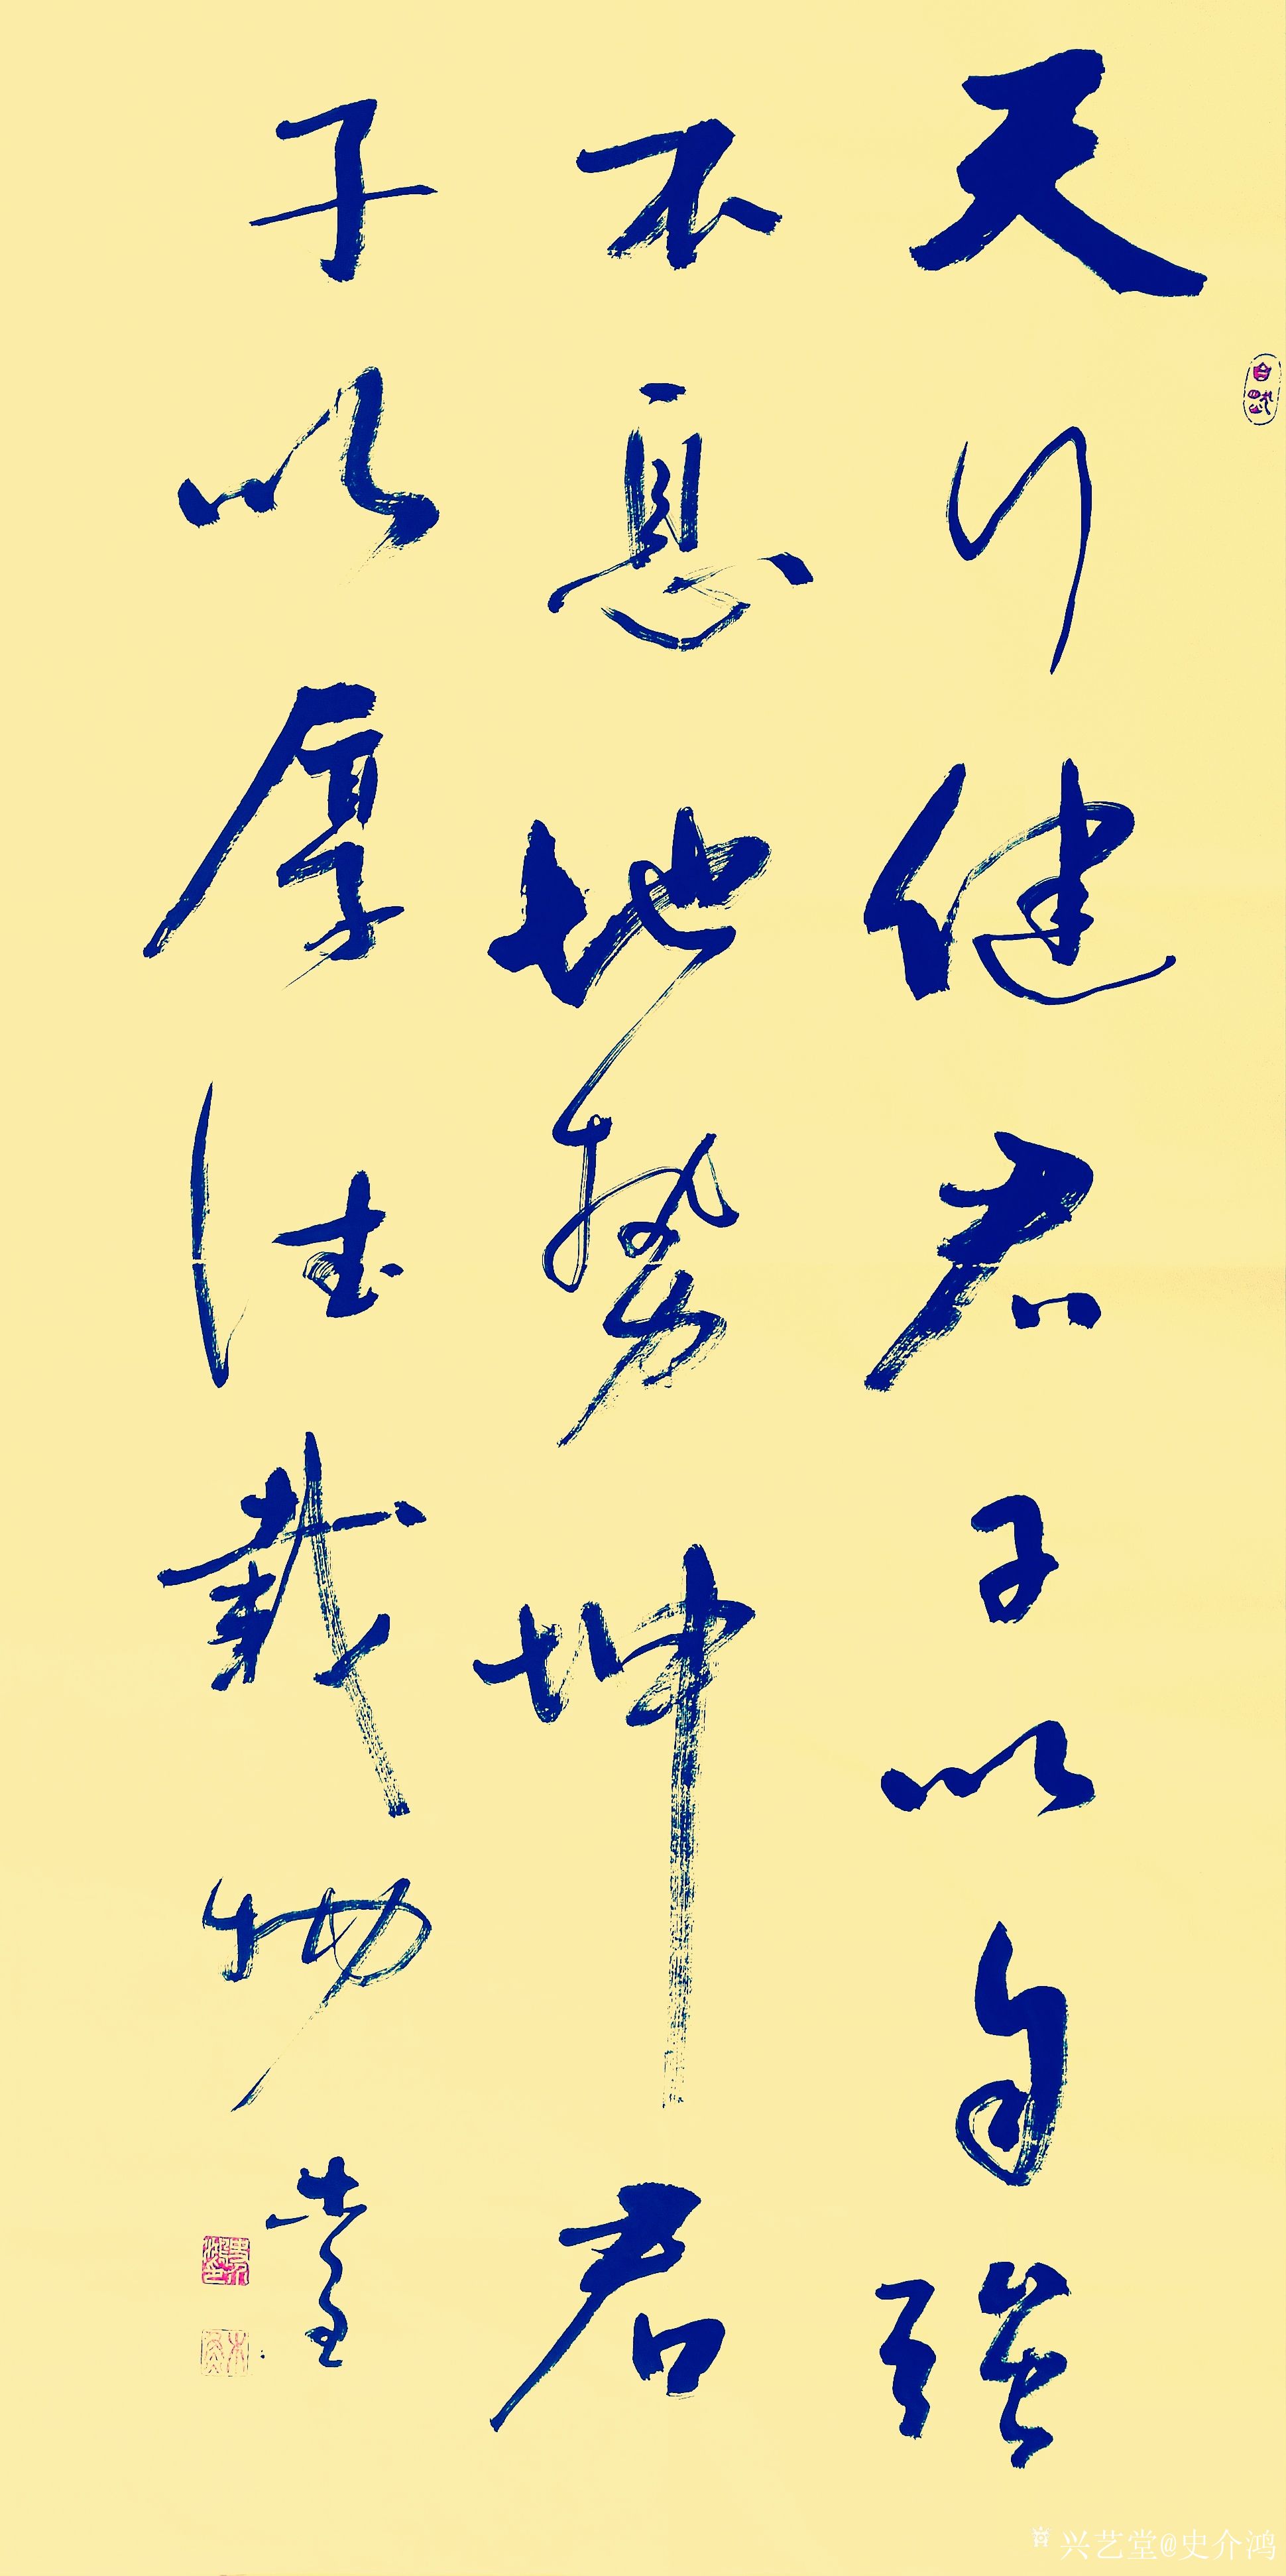 天行健君子以自强
不息地势坤君
子以厚德载物
兴艺堂@史介鸿